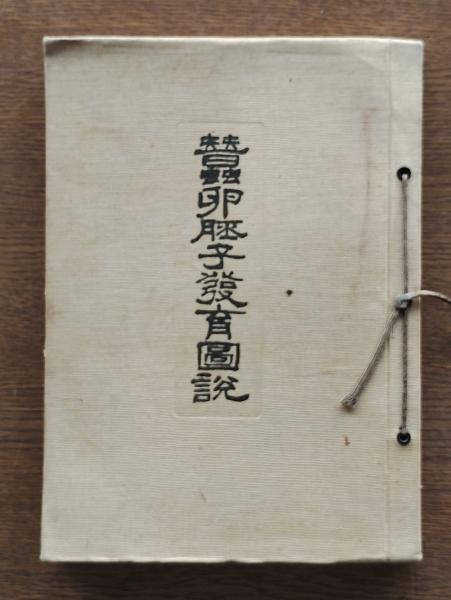 蠶卵胚子發育圖說